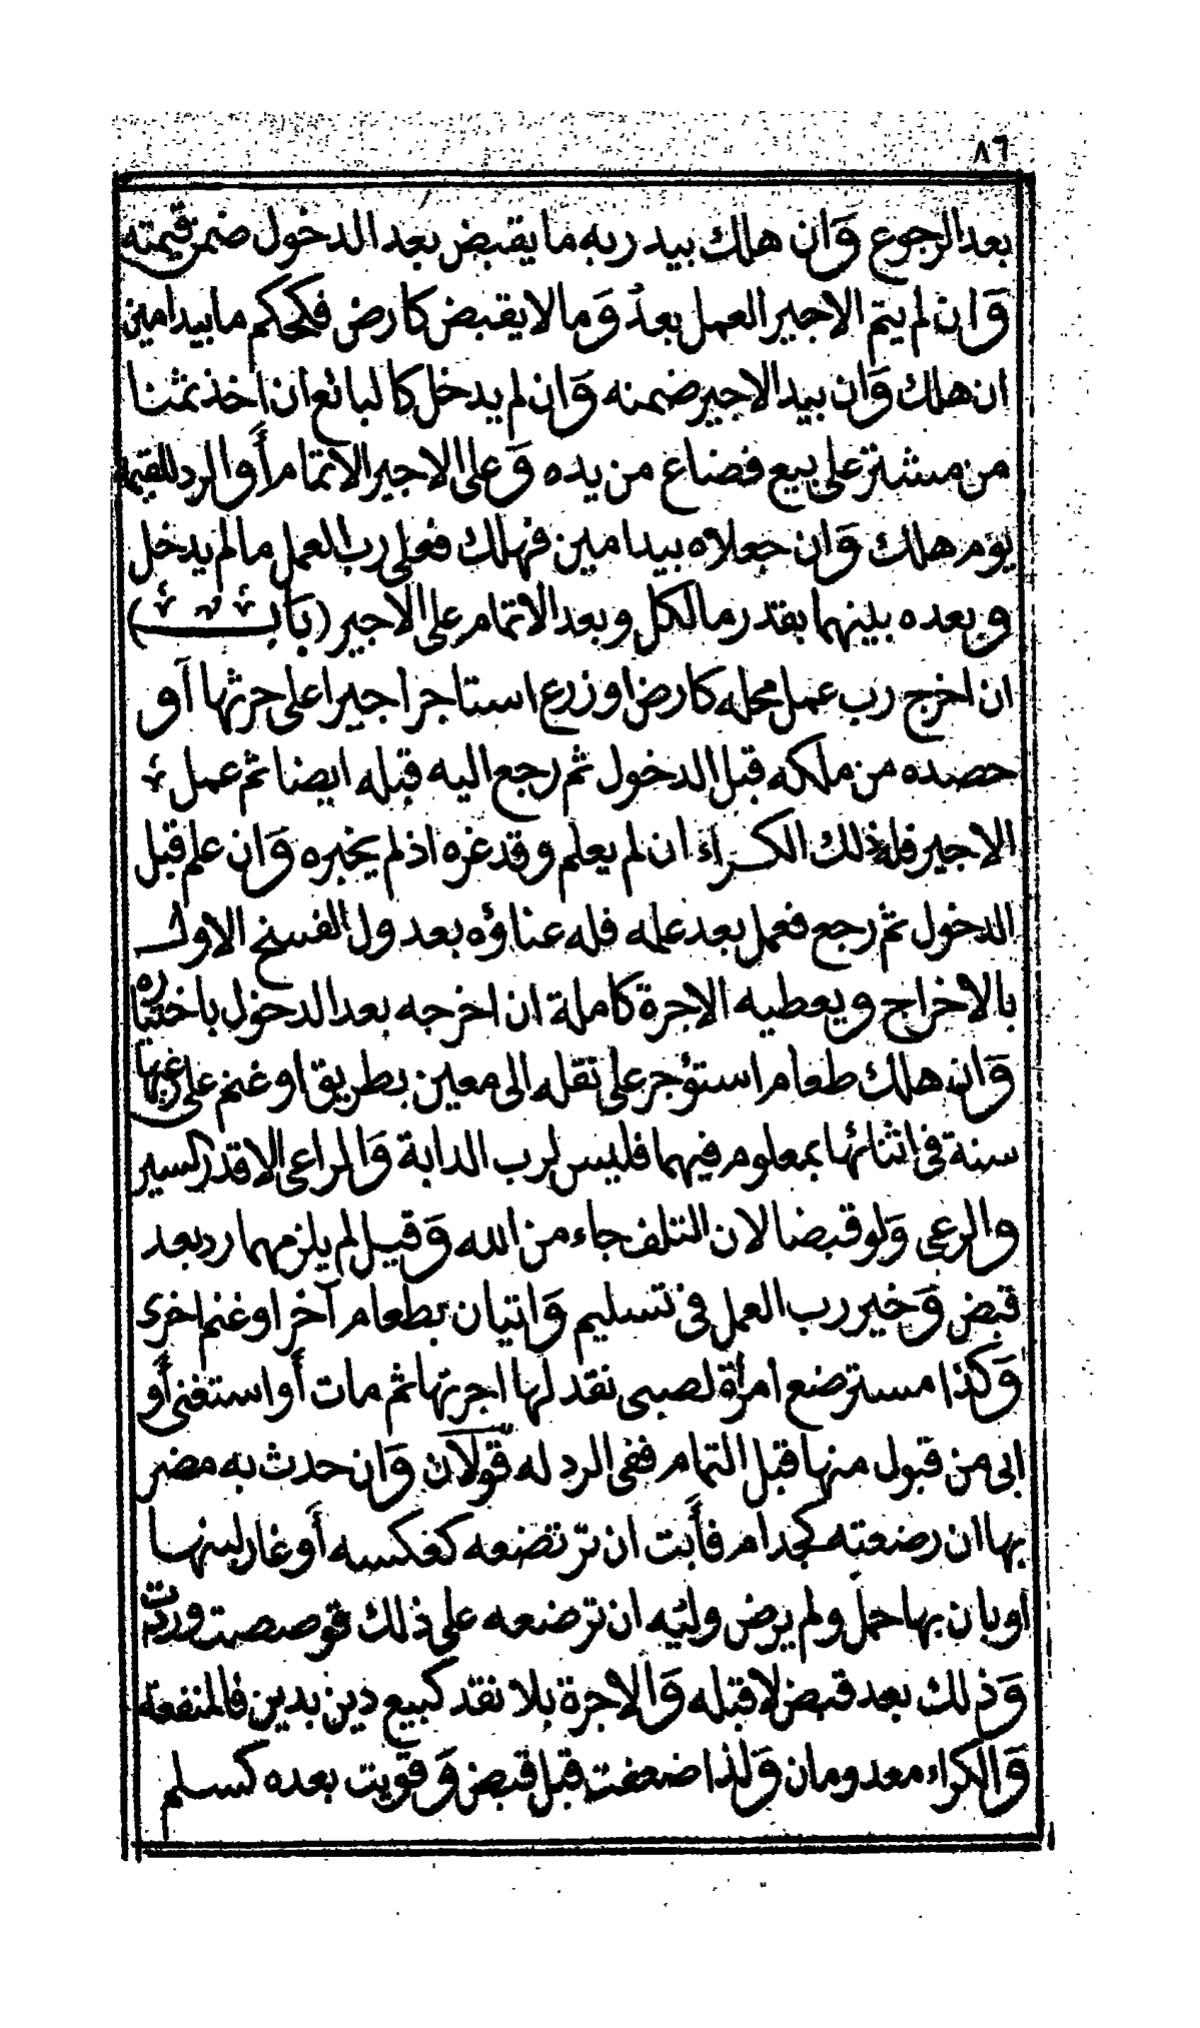 ٨٦
بعد الرجوع وَان هلك بيد ربه ما يقبض بعد الدخول ضمن قيمته
وَان لم يتم الاجير العمل بعدُ وَما لا يقبض كارض فكحكم ما بيد امين
ان هلك وَان بيد الاجير ضمنه وَان لم يدخل كالبائع ان اخذ ثمنا
من مشتر على بيع فضاع من يده وَعلى الاجير الاتمام أَو الرد للقيمة
يوم هلك وَان جعلاه بيد امين فهلك فعلى رب العمل ما لم يدخل
وبعده بينهما بقدر ما لكل وبعد الاتمام على الاجير (باب)
ان اخرج رب عمل محله كارض او زرع استاجر اجيرا على حرثها أو
حصده من ملكه قبل الدخول ثم رجع اليه قبله ايضا ثم عمل
الاجير فله ذلك الكراء ان لم يعلم وقد غره اذ لم يخبره وَان علم قبل
الدخول ثم رجع فعمل بعد علمه فله عناؤه بعد ول الفسخ الاول
بالاخراج ويعطيه الاجرة كاملة ان اخرجه بعد الدخول باختياره
وَان هلك طعام استؤجر على نقله الى معين بطريق او غنم على رعيها
سنة فى اثنائها بمعلوم فيهما فليس لرب الدابة وَالراعى الا قدر السير
والرعى وَلو قبضا لان التلف جاء من الله وَقيل لم يلزمهما رد بعد
قبض وَخير رب العمل فى تسليم وَاتيان بطعام آخر او غنم اخرى
وَكذا مسترضع امرأة لصبى نقد لها اجرتها ثم مات أَو استغنى أَو
ابى من قبول منها قبل التمام ففى الرد له قولان وَان حدث به مضر
بها ان رضعته كجدام فأَبت ان ترضعه كعكسه أَو غار لبنها
او بان بها حمل ولم يرض وليّه ان ترضعه على ذلك قوصصت وردت
وَذلك بعد قبض لا قبله وَالاجرة بلا نقد كبيع دين بدين فالمنفعة
وَالكراء معدومان وَلذا ضعفت قبل قبض وَقويت بعده كسلم